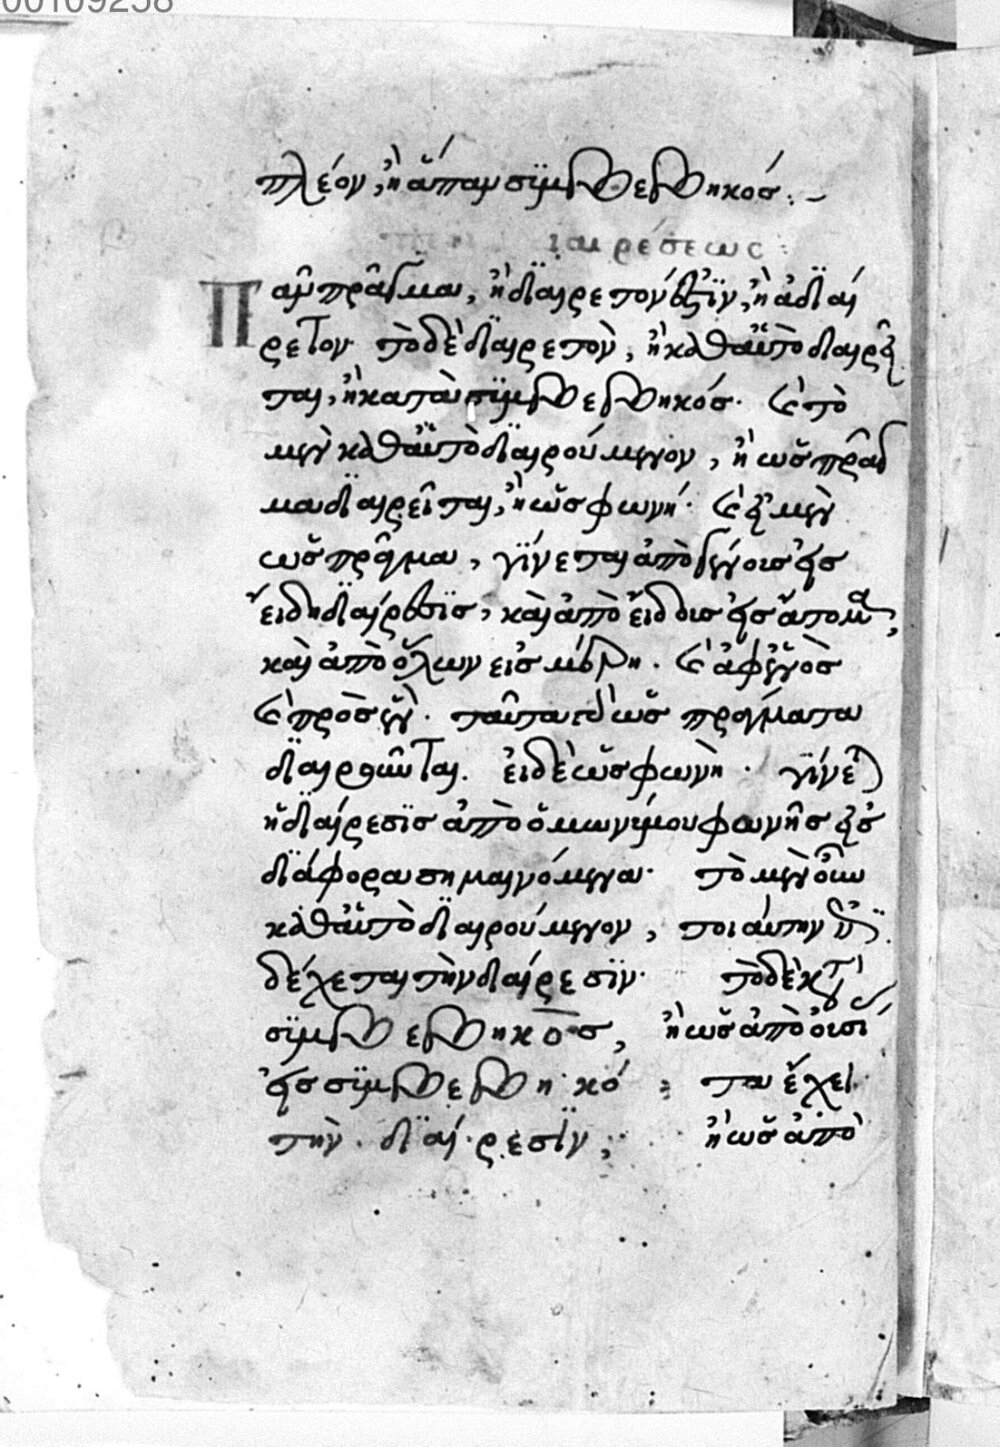 00109258
πλέον, ἢ ἅπαν σϊμβεβηκόσ :~
ιαιρέσεως :
Πᾶν πρᾶγμα, ἢ δϊαιρετόν ἐστϊν, ἢ ἀδϊαί
ρετον· τὸ δὲ δϊαιρετὸν, ἢ καθ' αὑτὸ διαιρεῖ
ται, ἢ κατὰ σϊμβεβηκόσ· καὶ τὸ
μὲν καθ' αὑτὸ δϊαιρούμενον, ἢ ὡσ πρᾶγ
μα δϊαιρεῖται, ἢ ὡσ φωνή· καὶ εἰ μὲν
ὡσ πρᾶγμα, γϊνεται ἀπὸ γένουσ εἰσ
εἴδη δϊαίρεσϊσ, καὶ ἀπὸ εἴδουσ εἰσ ἄτομα,
καὶ ἀπὸ ὅλων εἰσ μέρη· καὶ ἀφ' ἑνὸσ
καὶ πρὸσ ἓν· ταῦτα δ' ὡσ πράγματα
δϊαιροῦνται. εἰ δὲ ὡσ φωνὴ· γϊνεται
ἡ δϊαίρεσϊσ ἀπὸ ὁμωνύμου φωνῆσ εἰσ
δϊάφορα σημαινόμενα· τὸ μὲν οὖν
καθ' αὑτὸ δϊαιρούμενον, τοιαύτην
δέχεται τὴν διαίρεσϊν· τὸ δὲ κατὰ
σϊμβεβηκὸσ, ἢ ὡσ ἀπὸ οὐσί
εἰσ σϊμβεβηκό τα ἔχει
τὴν δϊαίρεσϊν, ἢ ὡσ ἀπὸ